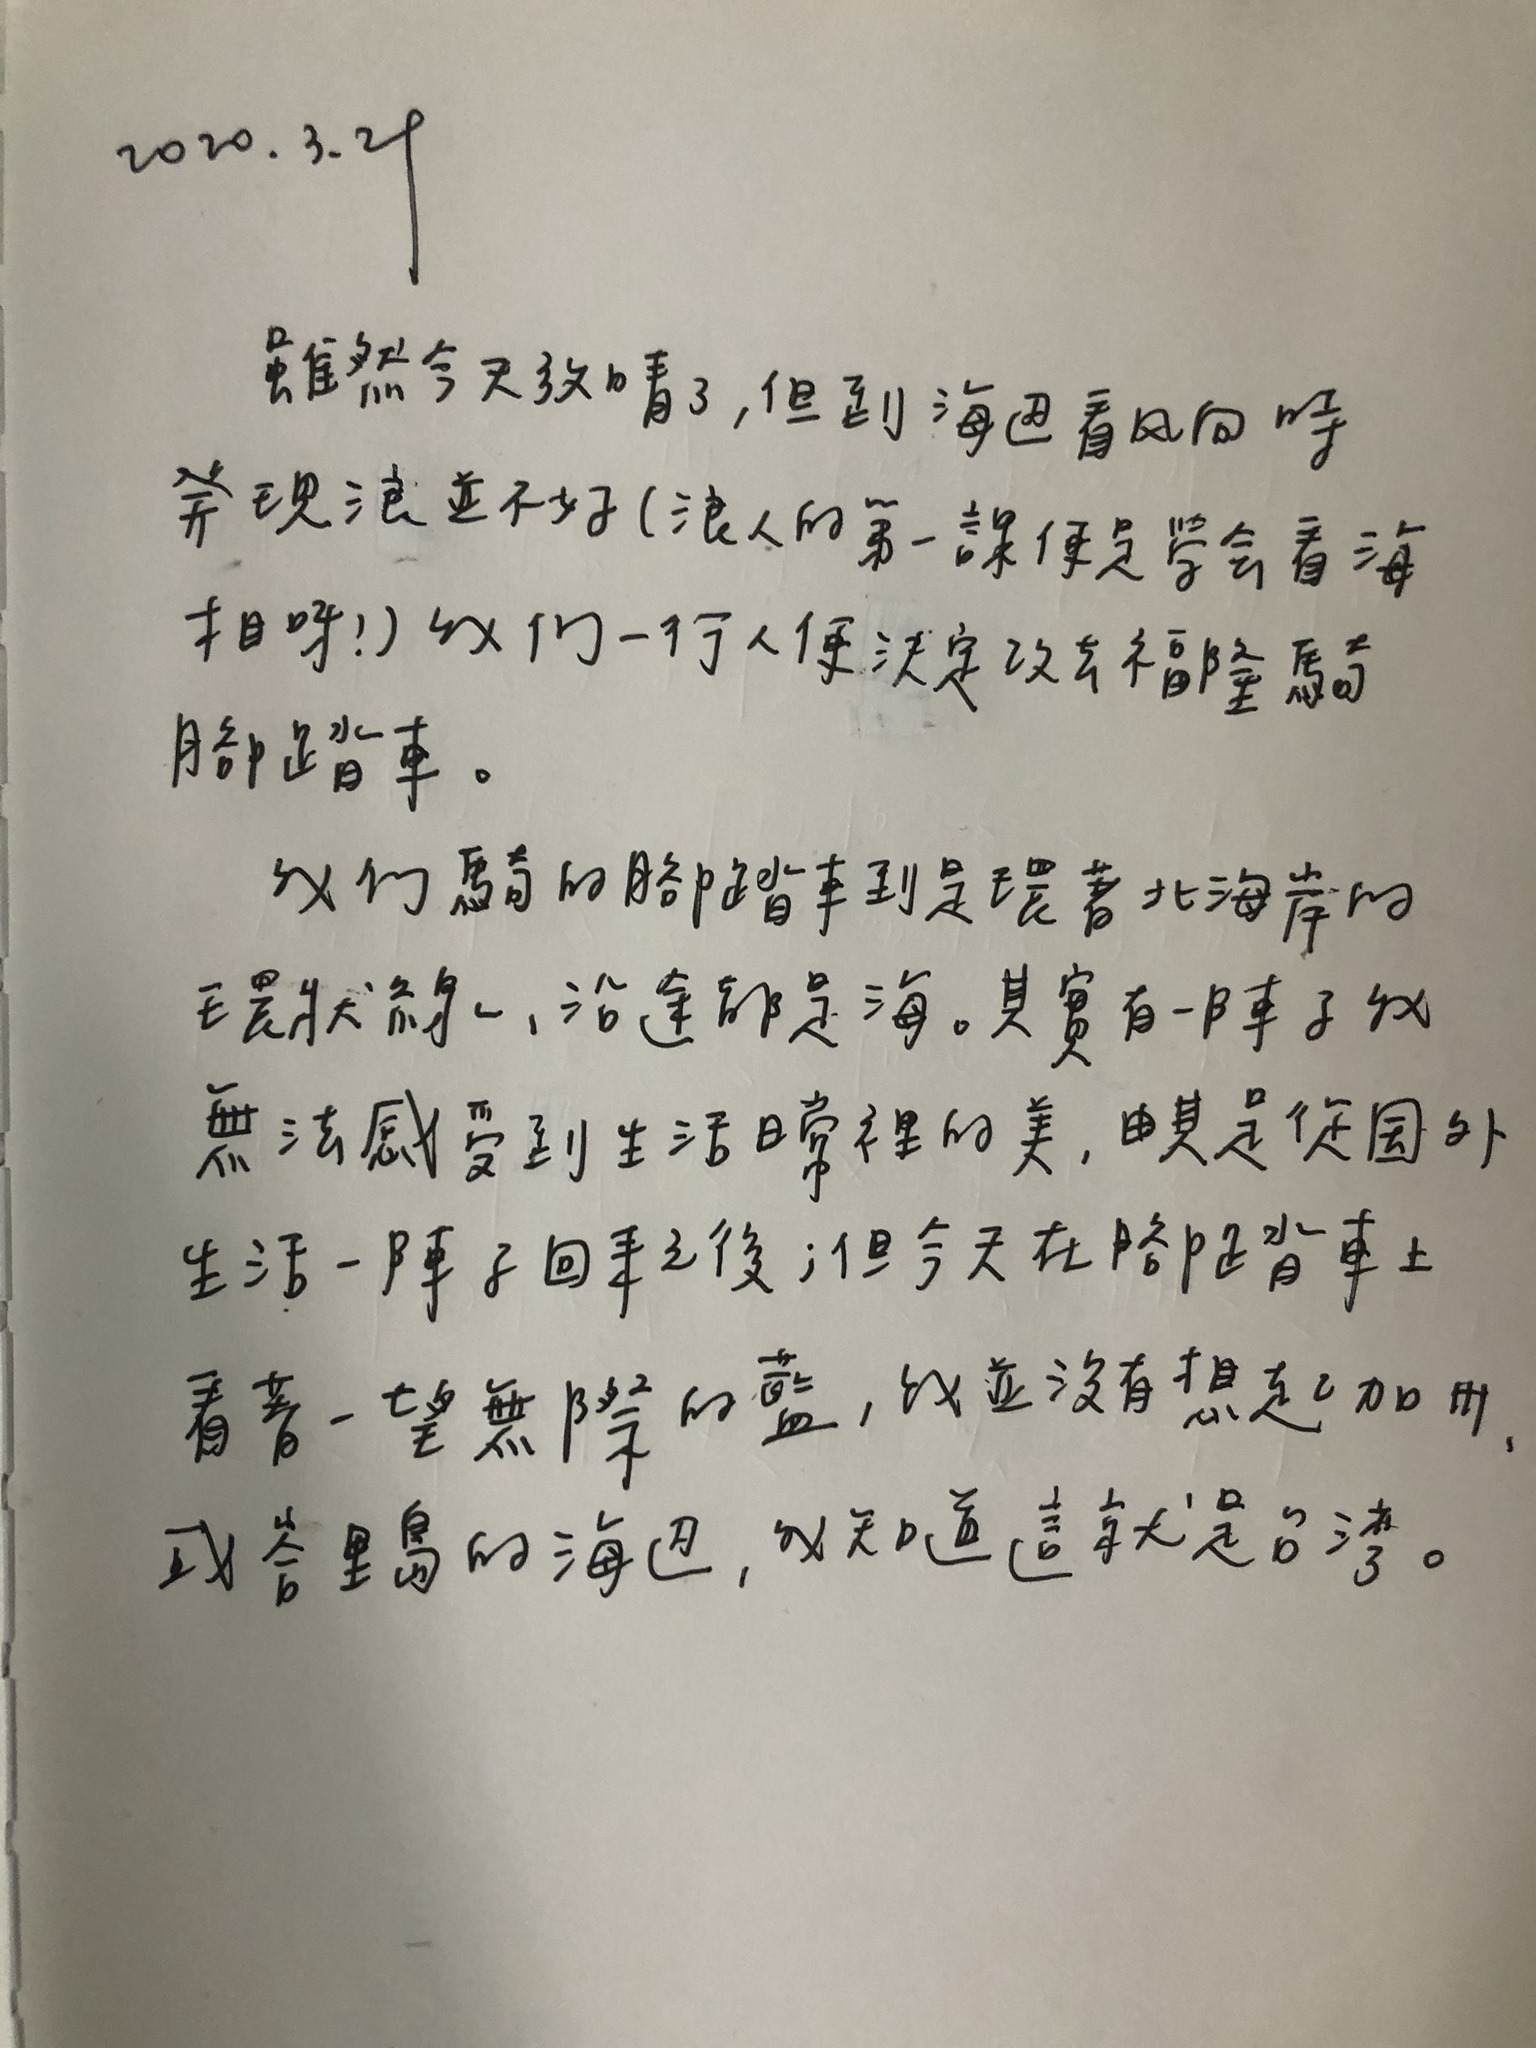 2020.3.29
雖然今天放晴了,但到海边看风向時
発現浪並不好(浪人的第一課便是学会看海
相呀!)我们一行人便決定改去福隆騎
腳踏車。
我们騎的腳踏車到是環著北海岸的
環狀線,沿途都是海。其實有一陣子我
無法感受到生活日常裡的美,尤其是從国外
生活一陣子回来之後;但今天在腳踏車上
看著一望無際的藍,我並没有想起加州、
或峇里島的海边,我知道這就是台湾。